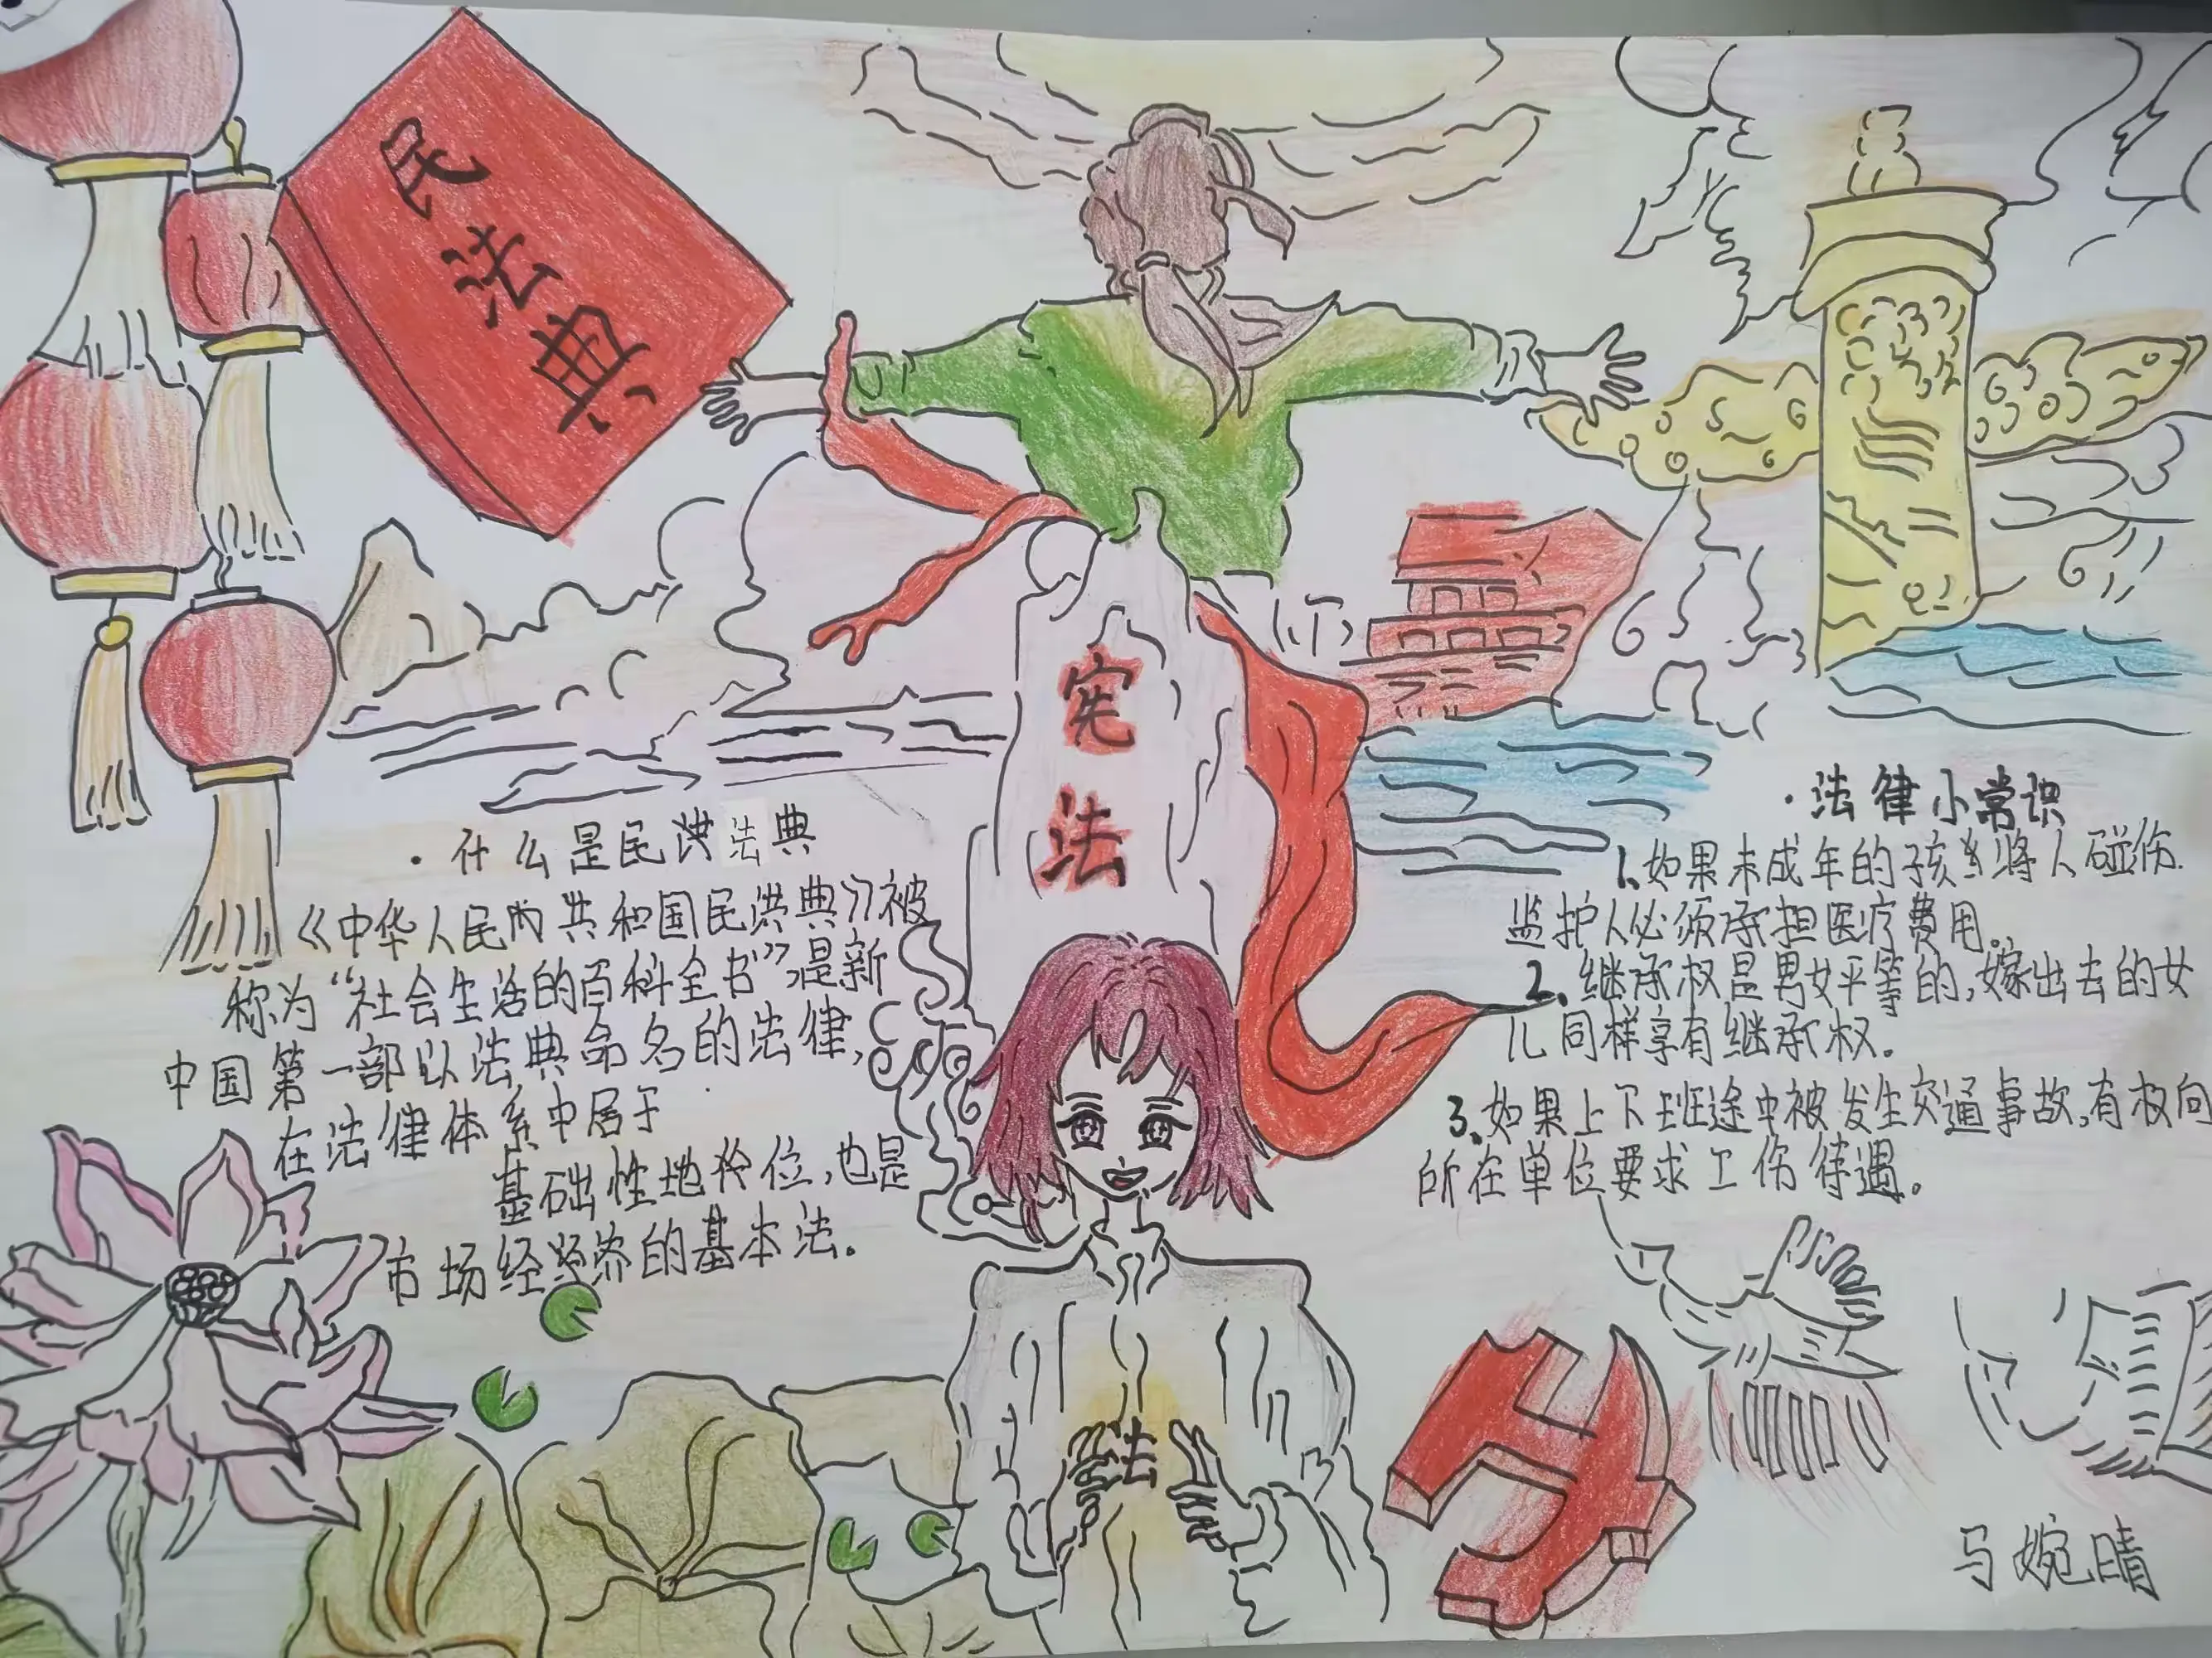 民法典
宪法
·什么是民法法典
《中华人民共和国民法典》被
称为“社会生活的百科全书”,是新
中国第一部以法典命名的法律,
在法律体系中居于
基础性地位,也是
市场经济的基本法。
·法律小常识
1.如果未成年的孩子将人碰伤.
监护人必须承担医疗费用。
2、继承权是男女平等的,嫁出去的女
儿同样享有继承权.
3、如果上下班途中被发生交通事故,有权向
所在单位要求工伤待遇。
法
马婉晴